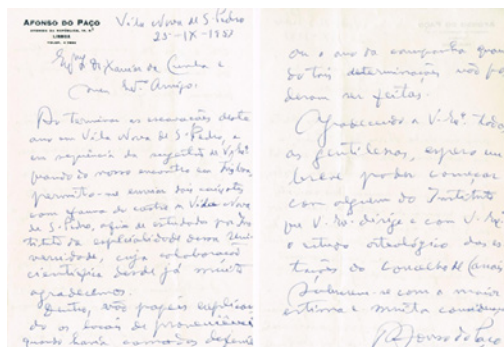 AFONSO DO PAÇO
LISBOA
Vila Nova de S. Pedro
25-IX-1951
Xavier da Cunha e
meu Exº Amigo:
Ao terminar as escavações deste
ano em Vila Nova de S. Pedro, e
em sequência da sugestão de V. Exª
quando do nosso encontro em Lisboa,
permito-me enviar dois caixotes
com fauna do castro de Vila Nova
de S. Pedro, afim de ser estudada por
tituto da especialidade dessa Uni-
versidade, cuja colaboração
científica desde já muito
agradecemos.
Dentro, vão papeis explican-
do os locais de proveniência
quando havia camadas
ou o ano da campanha quan-
do tais determinações não po-
deram ser feitas.
Agradecendo a V. Exª todas
as gentilesas, espero em
breve poder começar
com alguem do Instituto
que V. Exª dirige e com V. Exª
o estudo osteológico das es-
tações do Concelho de Cascais
Subscreve-se com a maior
estima e muita consideração
Afonso do Paço